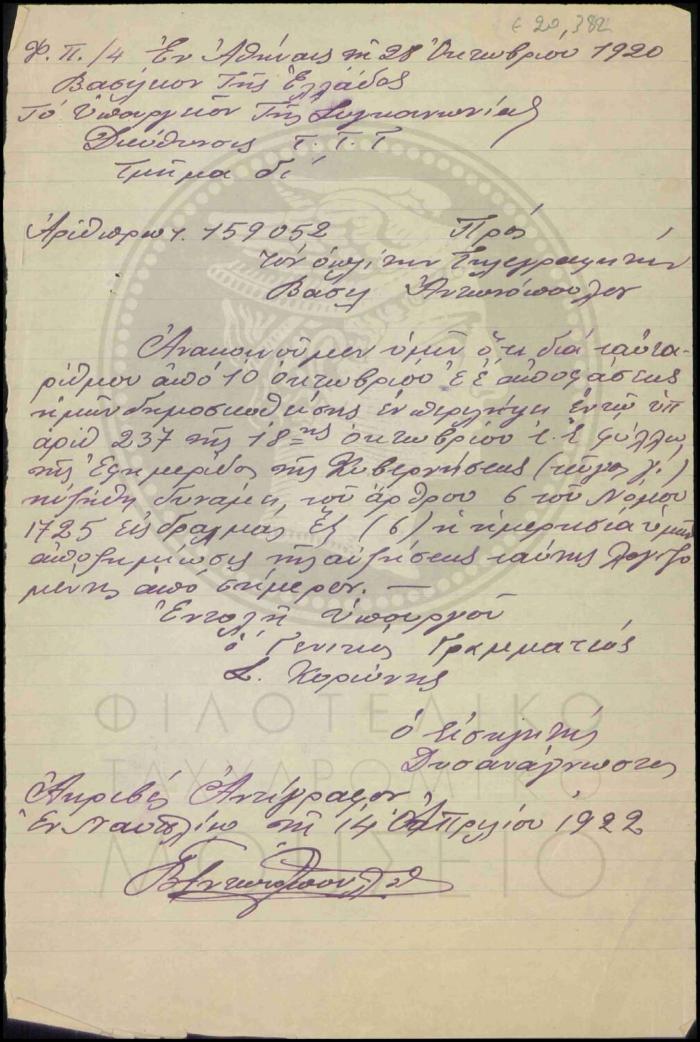 ε 20,382
Φ. Π. /4 Ἐν Ἀθήναις τῇ 28 Ὀκτωβρίου 1920
Βασήλιον Τῆς Ἑλλάδος
Τό Ὑπουργεῖον Τῆς Συγκοινωνίας
Διεύθυνσις Τ. Τ. Τ
Τμῆμα δί
Ἀριθ πρωτ. 159052 Πρός
τόν ὁπλίτην Τηλεγραφητήν
Βασιλ Ἀντωνόπουλον
Ἀνακοινοῦμεν ὑμῖν ὅτι διά ταὐτα-
ρίθμου ἀπό 10 Ὀκτωβρίου ἐ ἔ ἀποφάσεως
ἡμῶν δημοσιευθείσης ἐν περιλήψει ἐν τῷ ὑπ
ἀριθ 237 τῆς 18ης Ὀκτωβρίου ἐ. ἔ φύλλῳ
τῆς Ἐφημερίδος τῆς Κυβερνήσεως (τεῦχος γ΄.)
ηὐξήθη δυνάμει τοῦ ἄρθρου 6 τοῦ Νόμου
1725 εἰς δραχμάς ἕξ (6) ἡ ἡμερησία ὑμῶν
ἀποζημίωσις τῆς αὐξήσεως ταύτης λογιζο
μένης ἀπό σήμερον. —
Ἐντολῇ Ὑπουργοῦ
ὁ Γενικός Γραμματεύς
Σ. Κορώνης
ὁ Εἰσηγητής
Δυσανάγνωστος
Ἀκριβές Ἀντίγραφον
Ἐν Ναυπλίῳ τῇ 14 Ἀπριλίου 1922
ΦΙΛΟΤΕΛΙΚΟ
ΤΑΧΥΔΡΟΜΙΚΟ
ΜΟΥΣΕΙΟ